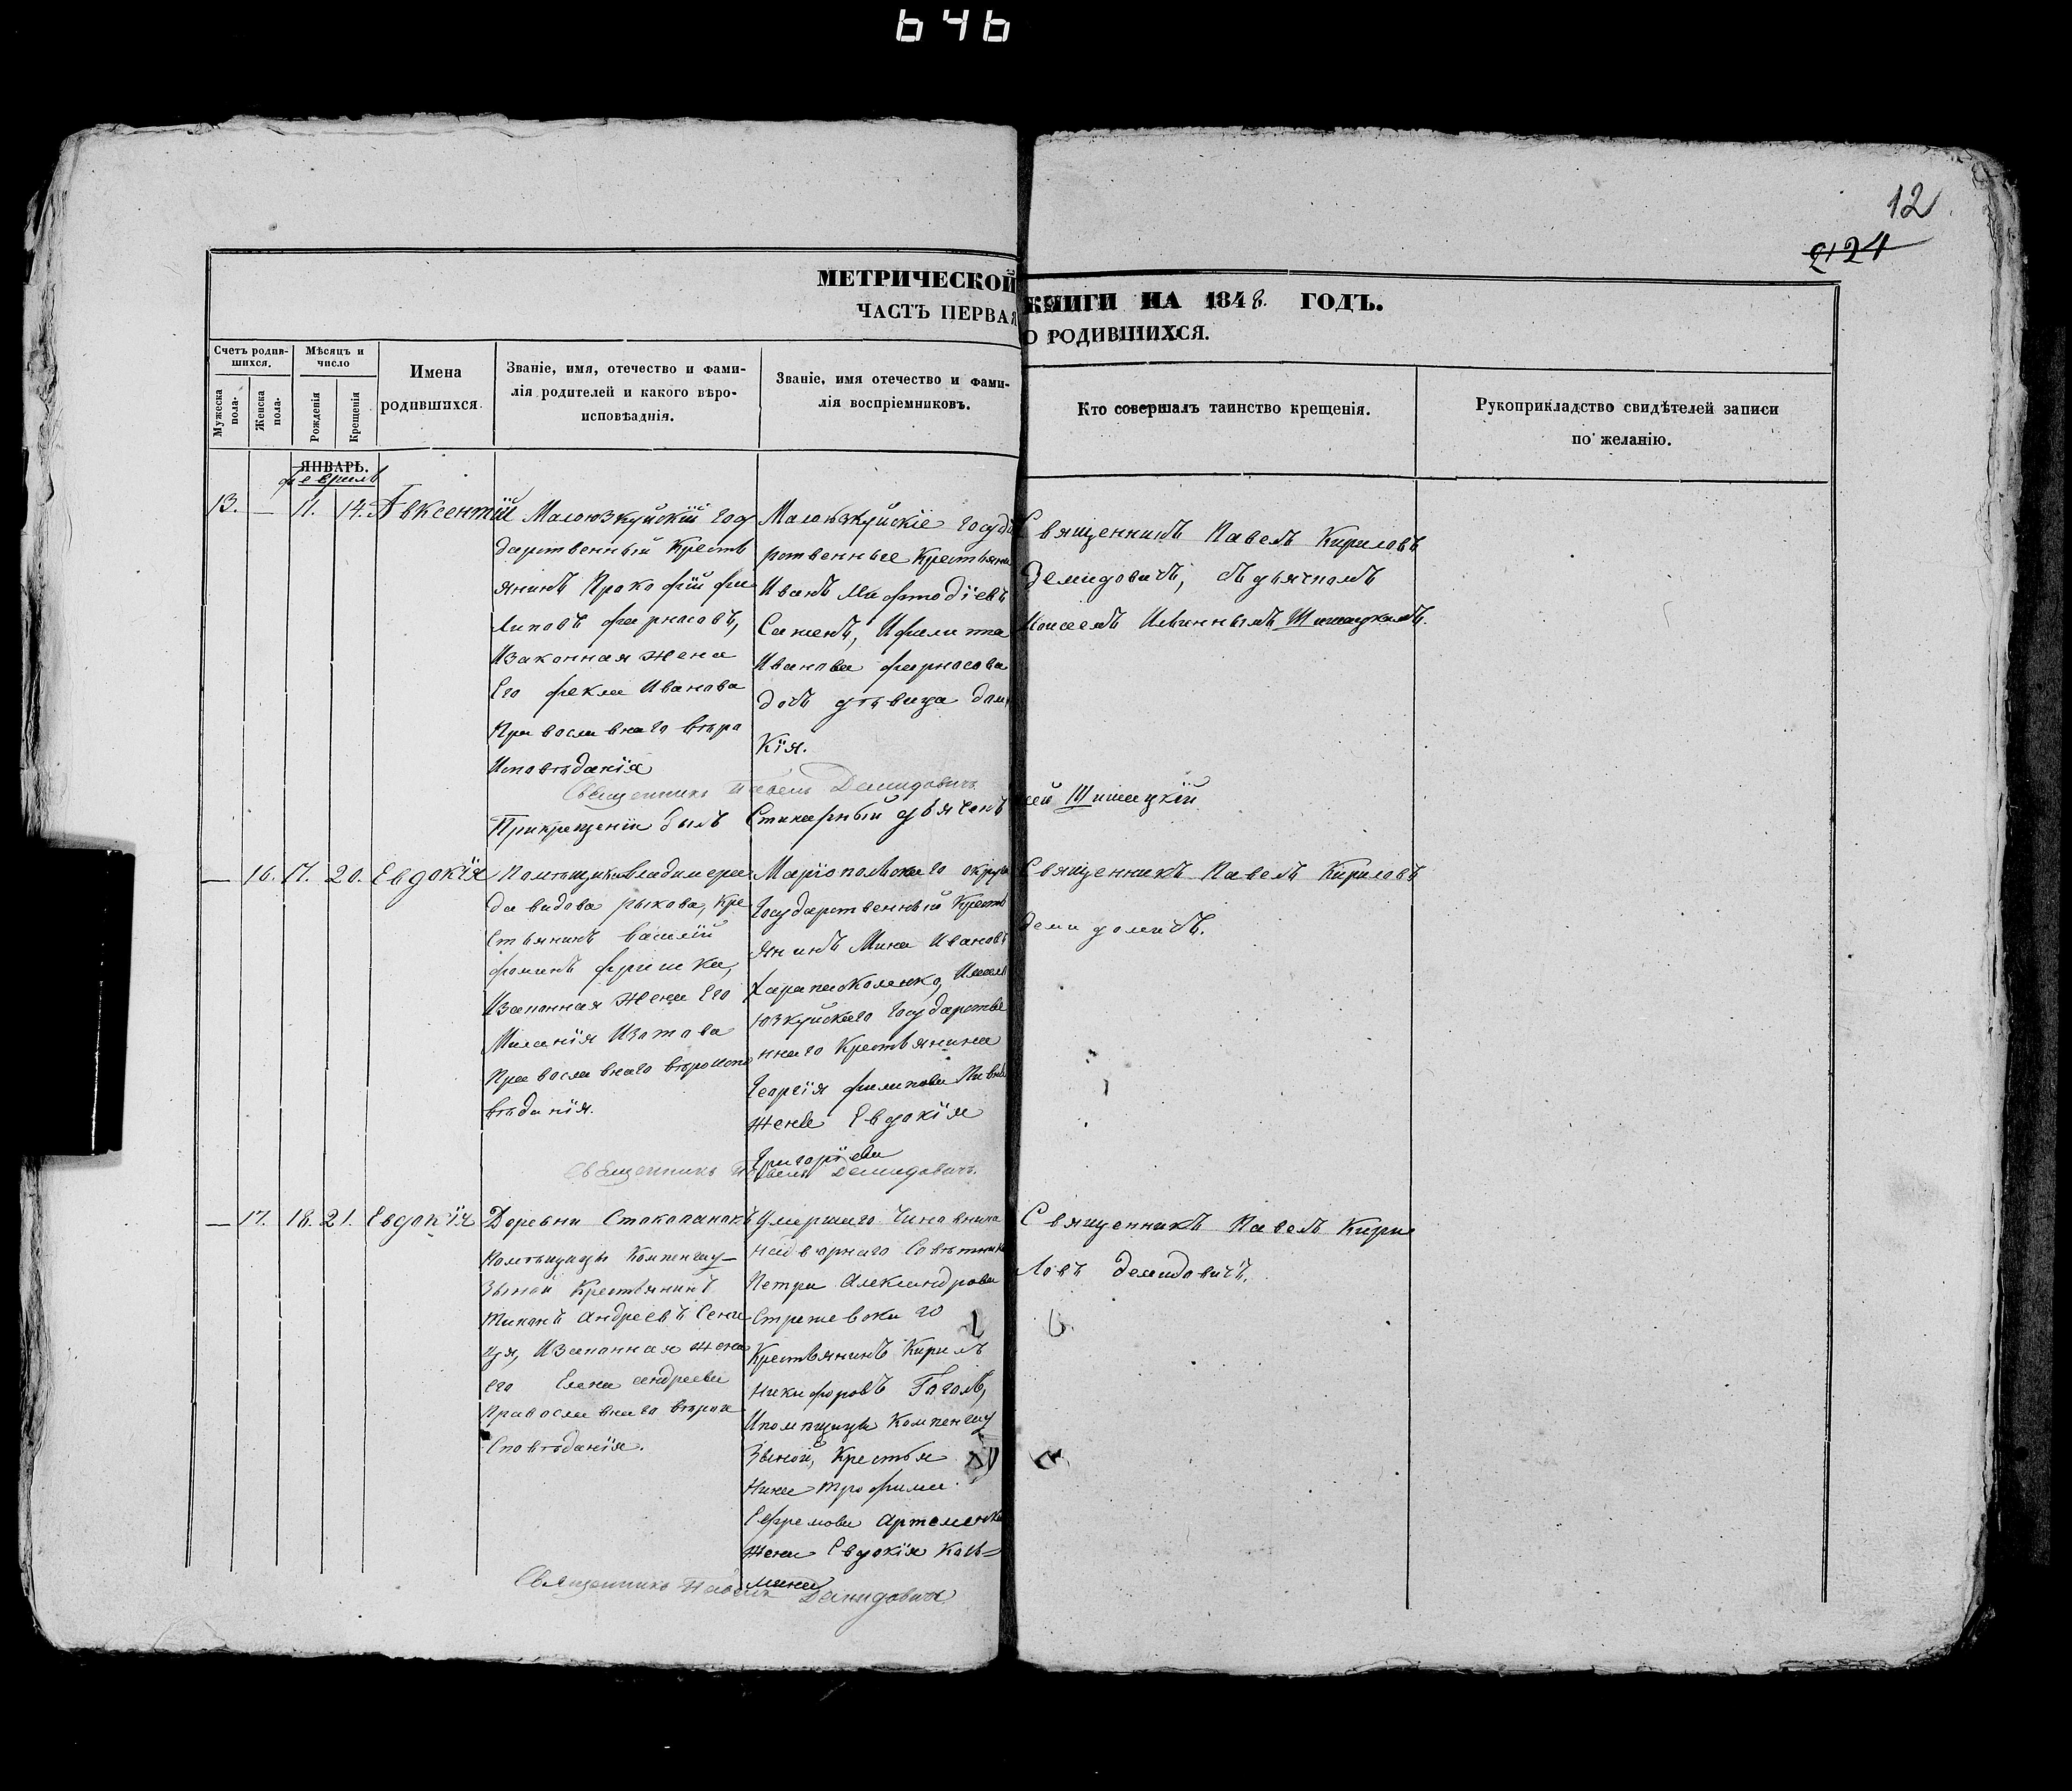 646
12
2124
МЕТРИЧЕСКОЙ КНИГИ НА 1848. ГОДЪ.
ЧАСТЬ ПЕРВАЯ О РОДИВШИХСЯ.
Счетъ родив-
шихся.
Мужеска
пола.
Женска
пола.
Мѣсяцъ и
число
Рожденія
Крещенія
Имена
родившихся.
Званіе, имя, отечество и фами-
лія родителей и какого вѣро-
исповѣданія.
Званіе, имя отечество и фами-
лія воспріемниковъ.
Кто совершалъ таинство крещенія.
Рукоприкладство свидѣтелей записи
по желанію.
ЯНВАРЬ.
февраль
13. — 11. 14. Авксентій
Малоюзкуйскій Госу
дарственный Кресть
янинъ Прокофій фи
липовъ фарнасовъ,
Изаконная жена
Его фекла Иванова
Православнаго вѣро
Исповѣданія
Малоюзкуйскіе Госуда
рственные Крестьяне
Иванъ Мифтодіевъ
Саженъ, Ифилипа
Иванова фарносова
дочь дѣвица дом
кія.
Священникъ Павелъ Кириловъ
Демидовичъ, съ дьячкомъ
Моисеемъ Ильиннымъ Шишацкимъ.
Священникъ Павелъ Демидовичъ
Прикрещеніи былъ Стихарный дьячекъ сей Шишацкій
— 16. 17. 20. Евдокія
Помѣщика Владимера
давидова рыкова, кре
стьянинъ василій
фоминъ фришка,
Изаконная жена Его
Маланія Изотова
Православнаго вѣроиспо
вѣданія.
Маріопольскаго округа
Государственный Кресть
янинъ Мина Ивановъ
Имало
юзкуйскаго Государстве
ннаго Крестьянина
Георгія филипова Пивня
жена Евдокія
Григоріева
Священникъ Павелъ Кириловъ
демидовичъ.
Священникъ Павелъ Демидовичъ.
— 17. 18. 21. Евдокія
Деревни Стокопанокъ
помѣщицы Компенгау-
зыной Крестьянинъ
Тиханъ Андреевъ Сени
ця, Изаконная жена
его Елена андреева
православнаго вѣрои
сповѣданія.
Умершаго Чиновника
надворнаго Совѣтника
Петра Александрова
Стрежевскаго
Крестьянинъ Кирилъ
Никифоровъ Гоголь,
Ипомѣщицы Компенгау
зыной, Крестья
нина трофима
Ефремова Артеменка
жена Евдокія Козь=
мина
Священникъ Павелъ Кири
ловъ демидовичъ.
Священникъ Павелъ Демидовичъ